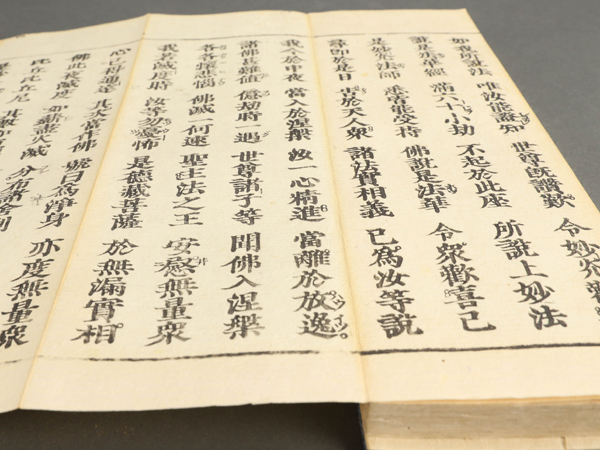 如我所說法 唯汝能證知 世尊既讚歎 令妙光歡
說是法華經 滿六十小劫 不起於此座 所說上妙法
是妙光法師 悉皆能受持 佛說是法華 令衆歡喜已
尋即於是日 告於天人衆 諸法實相義 已為汝等說
我今於中夜 當入於涅槃 汝一心精進 當離於放逸
諸佛甚難値 億劫時一遇 世尊諸子等 聞佛入涅槃
各各懷悲惱 佛滅一何速 聖主法之王 安慰無量衆
我若滅度時 汝等勿憂怖 是德藏菩薩 於無漏實相
心已得通達 其次當作佛 號曰為淨身 亦度無量衆
佛此夜滅度 如薪盡火滅 分布諸舍利
比丘比丘尼 其數如